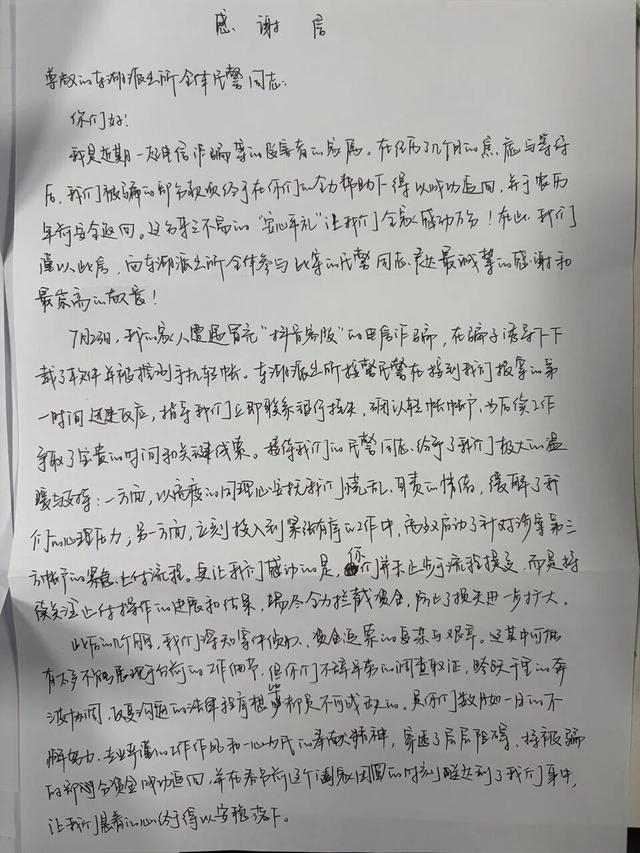 感谢信
尊敬的东湖派出所全体民警同志:
你们好!
我是近期一起电信诈骗案的受害者的家属。在经历了几个月的焦虑与等待
后,我们被骗的部分款项终于在你们的全力帮助下得以成功追回,并于农历
年前安全返回。这份来之不易的“安心年礼”让我们全家感动万分!在此,我们
谨以此信,向东湖派出所全体参与此案的民警同志表达最诚挚的感谢和
最崇高的敬意!
7月23日,我的家人遭遇冒充“抖音客服”的电信诈骗,在骗子诱导下下
载了软件并被操控手机转帐。东湖派出所接警民警在接到我们报案的第
一时间迅速反应,指导我们立即联系银行挂失,确认转帐帐户,为后续工作
争取了宝贵的时间和关键线索。接待我们的民警同志给予了我们极大的温
暖与支持:一方面,以高度的同理心安抚我们慌乱、自责的情绪,缓解了我
们的心理压力;另一方面,立刻投入到紧张有序的工作中,高效启动了针对涉案第三
方帐户的紧急止付流程。更让我们感动的是,你们并未止步于流程提交,而是持
续关注止付操作的进展和结果,竭尽全力拦截资金,防止了损失进一步扩大。
此后的几个月,我们深知案件侦办、资金追索的复杂与艰辛。这其中可能
有太多不能展现于台前的工作细节,但你们不辞辛劳的调查取证,跨越千里的奔
波协调,反复沟通的法律程序想必都是不可或缺的。是你们数月如一日的不
懈努力、专业严谨的工作作风和一心为民的奉献精神,穿透了层层阻碍,将被骗
的部分资金成功追回,并在春节前这个阖家团圆的时刻送达到了我们手中,
让我们悬着的心终于得以安稳落下。